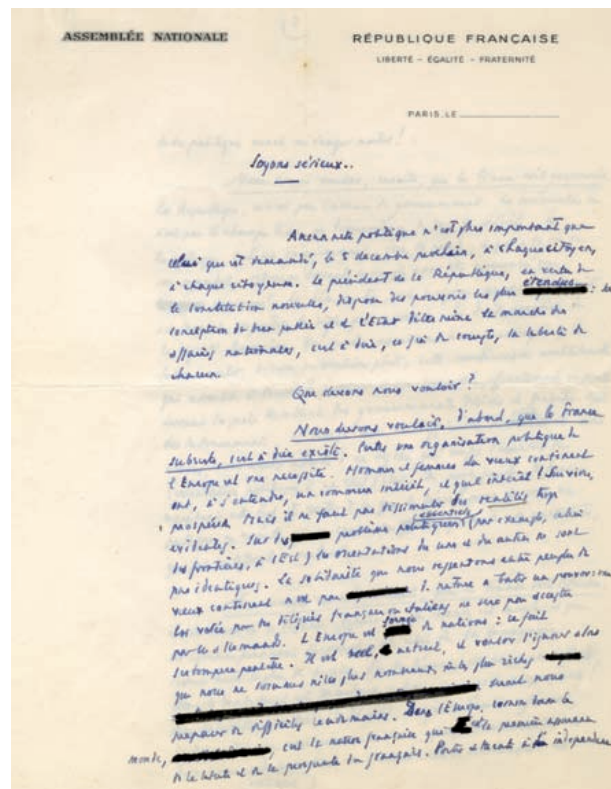 ASSEMBLÉE NATIONALE
RÉPUBLIQUE FRANÇAISE
LIBERTÉ - ÉGALITÉ - FRATERNITÉ
PARIS, LE
Soyons sérieux..
Aucun acte politique n'est plus important que
celui qui est demandé, le 5 décembre prochain, à chaque citoyen,
à chaque citoyenne. Le président de la République, en vertu de
la constitution nouvelle, dispose des pouvoirs les plus étendus : sa
conception du bien public et de l'État détermine la marche des
affaires nationales, c'est à dire, en fin de compte, la liberté de
chacun.
Que devons nous vouloir ?
Nous devons vouloir, d'abord, que la France
subsiste, c'est à dire existe. Certes une organisation politique de
l'Europe est une nécessité. Hommes et femmes du vieux continent
ont, à s'entendre, un commun intérêt, et quel intérêt ! Survivre,
prospérer. Mais il ne faut pas dissimuler des réalités trop
évidentes. Sur des problèmes politiques essentiels (par exemple, celui
des frontières, à l'Est) les orientations des uns et des autres ne sont
pas identiques. La solidarité que nous ressentons entre peuples du
vieux continent n'est pas de nature à bâtir un pouvoir : une
loi votée par des délégués français ou italiens ne sera pas acceptée
par les allemands. L'Europe est formée de nations : ce fait
. Il est réel, naturel, et vouloir l'ignorer alors
que nous ne sommes ni les plus nombreux, ni les plus riches
serait nous
préparer de difficiles lendemains. Dans l'Europe, comme dans le
monde, c'est la nation française qui est le premier
de la liberté et de la prospérité des français. Porter atteinte à son indépendance